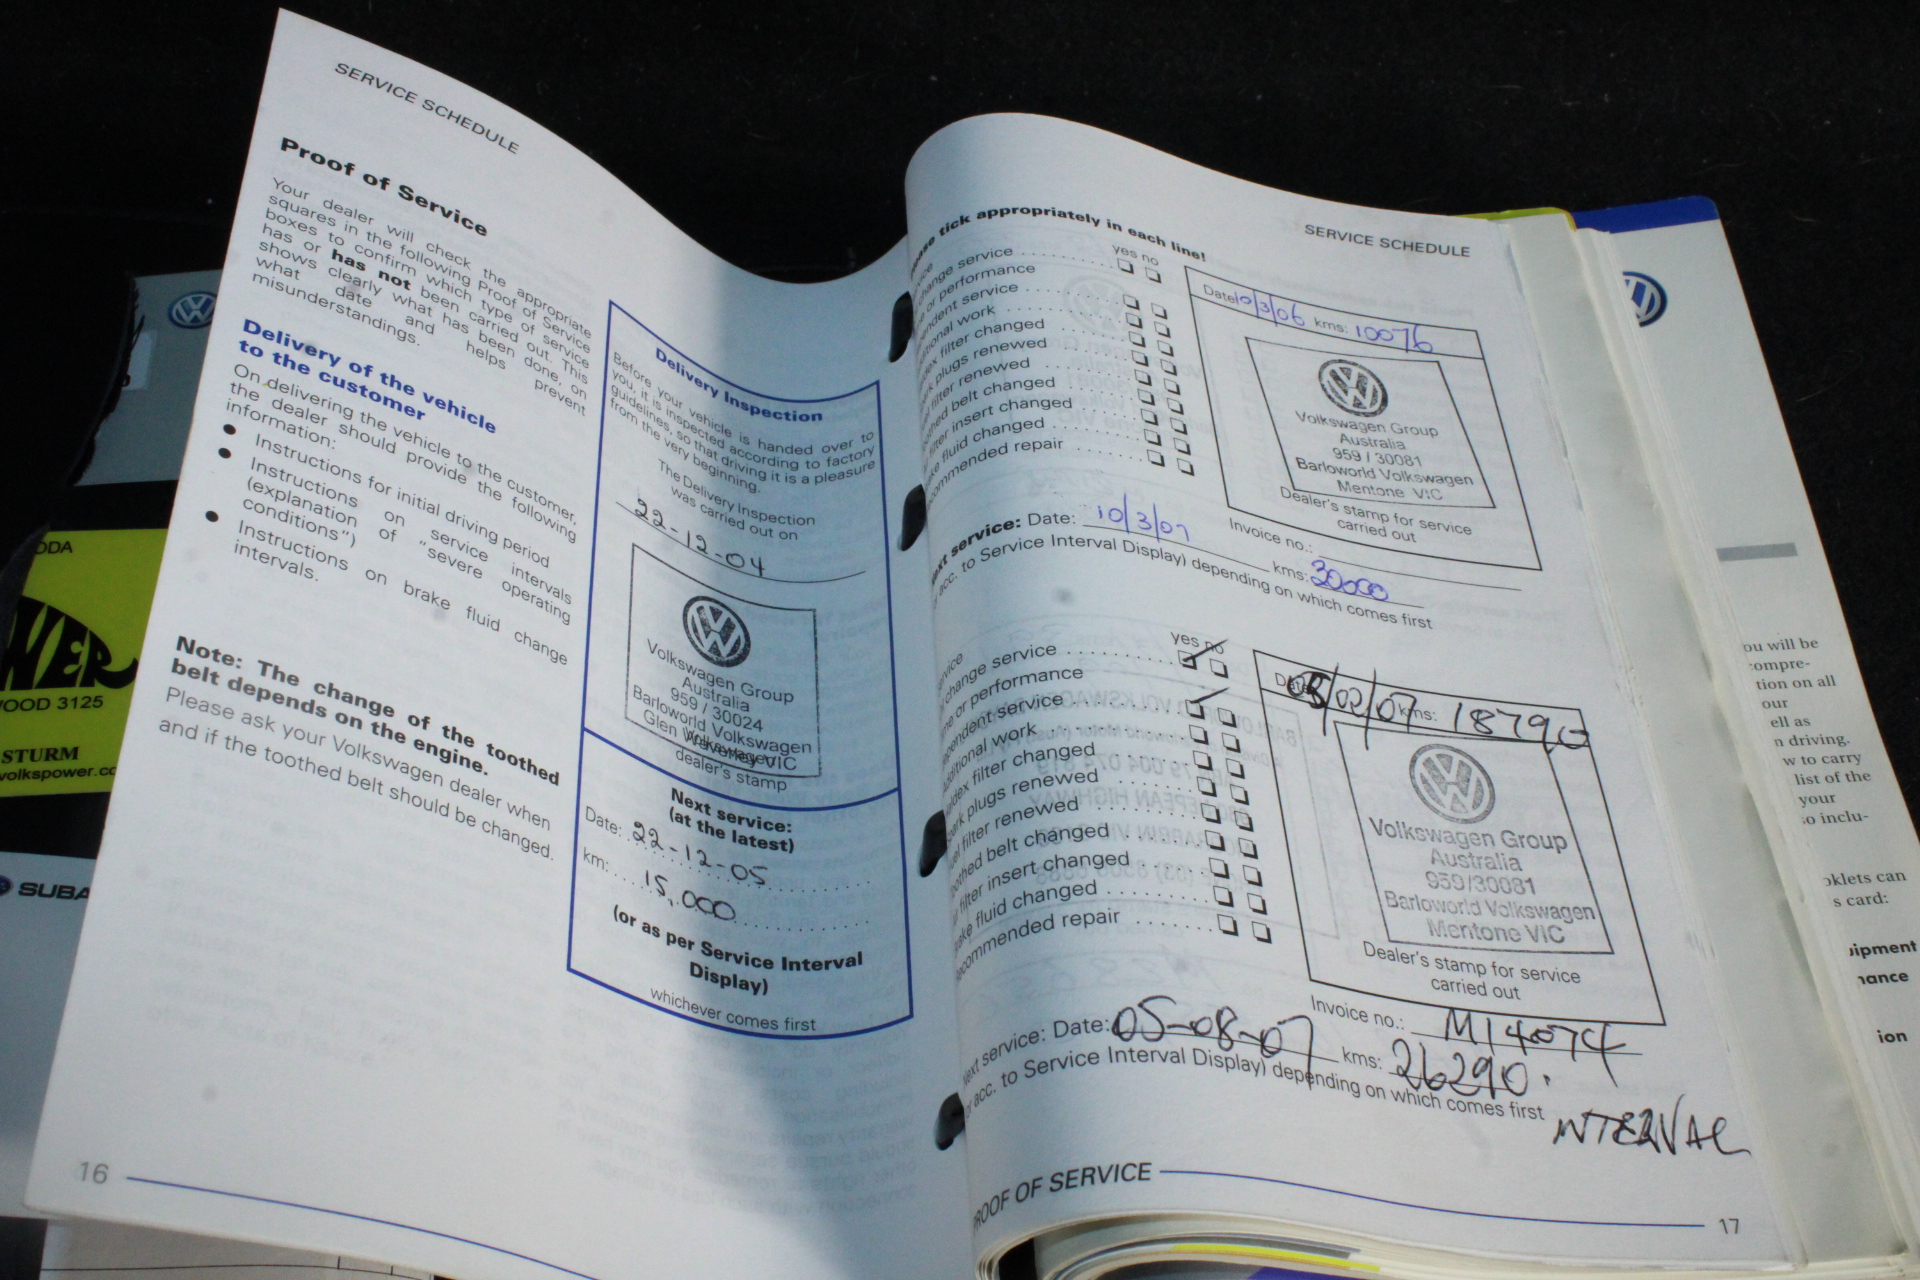 SERVICE SCHEDULE
Proof of Service
Your dealer will check the appropriate
squares in the following Proof of Service
boxes to confirm which type of service
has or has not been carried out. This
shows clearly what has been done, on
what date and helps prevent
misunderstandings.
Delivery of the vehicle
to the customer
On delivering the vehicle to the customer,
the dealer should provide the following
information:
● Instructions for initial driving period
● Instructions on service intervals
(explanation of "severe operating
conditions")
● Instructions on brake fluid change
intervals.
Note: The change of the toothed
belt depends on the engine.
Please ask your Volkswagen dealer when
and if the toothed belt should be changed.
16
Delivery Inspection
Before your vehicle is handed over to
you, it is inspected according to factory
guidelines, so that driving it is a pleasure
from the very beginning.
The Delivery Inspection
was carried out on
22-12-04
Volkswagen Group
Australia
959 / 30024
Barloworld Volkswagen
Glen Waverley VIC
dealer's stamp
Next service:
(at the latest)
Date: 22-12-05
km: 15,000
(or as per Service Interval
Display)
whichever comes first
SERVICE SCHEDULE
tick appropriately in each line!
yes no
change service
or performance
service
work
filter changed
plugs renewed
filter renewed
belt changed
insert changed
fluid changed
repair
Date 10/3/06 kms: 10076
Volkswagen Group
Australia
959 / 30081
Barloworld Volkswagen
Mentone VIC
Dealer's stamp for service
carried out
Invoice no.:
service: Date: 10/3/07 kms: 30000
acc. to Service Interval Display) depending on which comes first
yes no
change service
or performance
service
work
filter changed
plugs renewed
filter renewed
belt changed
filter insert changed
fluid changed
repair
05/02/07 kms: 18790
Volkswagen Group
Australia
959/30081
Barloworld Volkswagen
Mentone VIC
Dealer's stamp for service
carried out
Invoice no.: M14074
service: Date: 05-08-07 kms: 26290.
acc. to Service Interval Display) depending on which comes first
INTERVAL
PROOF OF SERVICE
17
OOD 3125
STURM
volkspower.co
SUBA
ou will be
ompre-
tion on all
our
ell as
n driving.
w to carry
list of the
your
o inclu-
oklets can
s card:
uipment
nance
ion